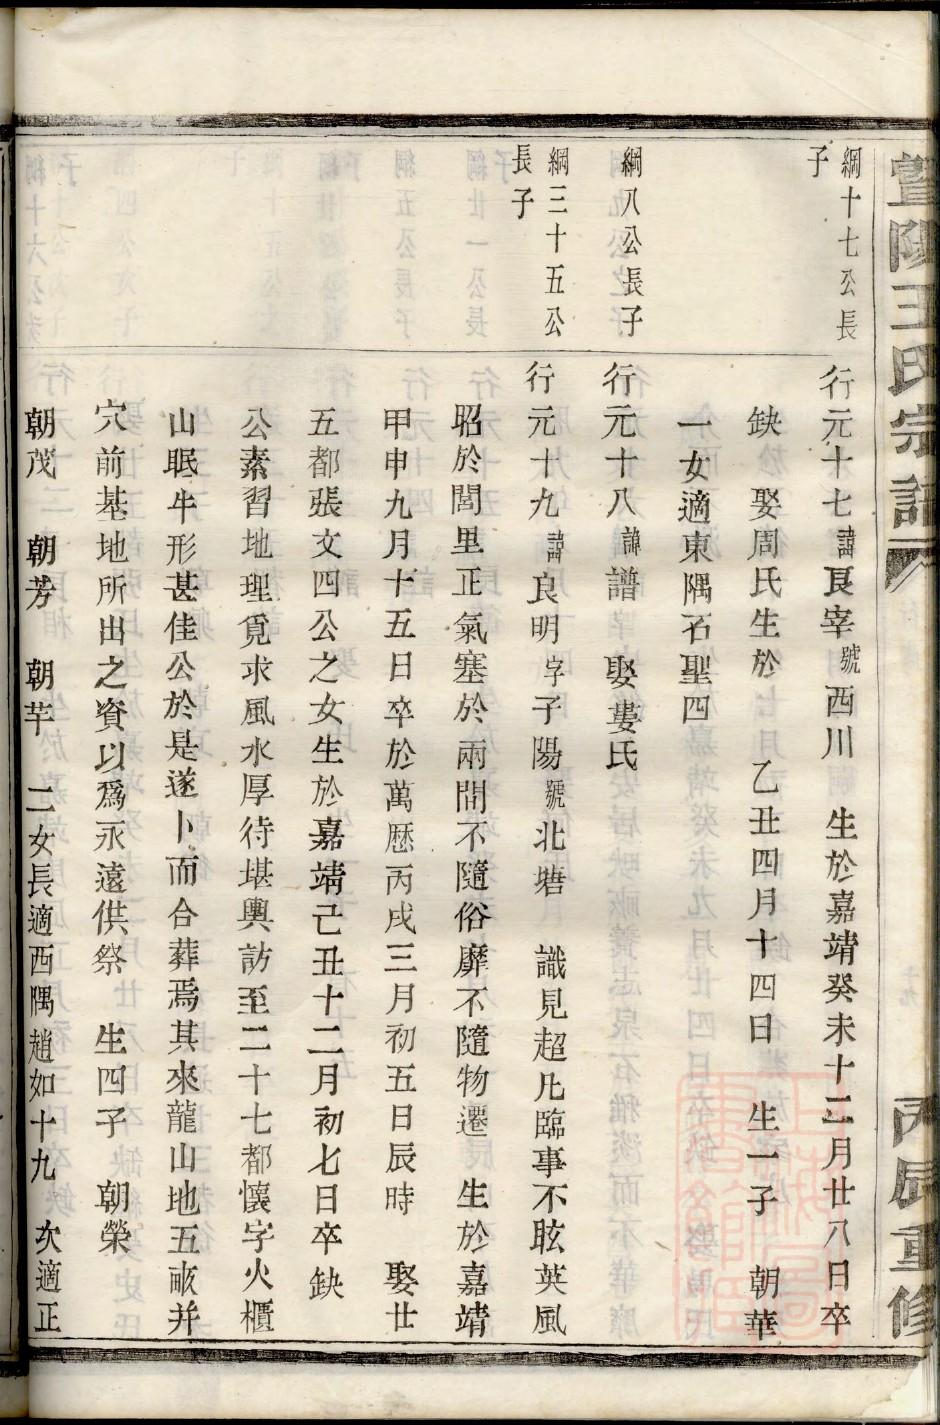 暨陽王氏宗譜
丙辰重修
綱十七公長
子
行元十七諱良宰號西川 生於嘉靖癸未十二月廿八日卒
缺 娶周氏生於 乙丑四月十四日 生一子 朝華
一女適東隅石聖四
綱八公長子
行元十八諱譜 娶婁氏
綱三十五公
長子
行元十九諱良明字子陽號北塘 識見超凡臨事不眩英風
昭於閭里正氣塞於兩間不隨俗靡不隨物遷 生於嘉靖
甲申九月十五日卒於萬歷丙戌三月初五日辰時 娶廿
五都張文四公之女生於嘉靖己丑十二月初七日卒缺
公素習地理覓求風水厚待堪輿訪至二十七都懷字火櫃
山眠牛形甚佳公於是遂卜而合葬焉其來龍山地五畝并
穴前基地所出之資以爲永遠供祭 生四子 朝榮
朝茂 朝芳 朝芊 二女長適西隅趙如十九 次適正